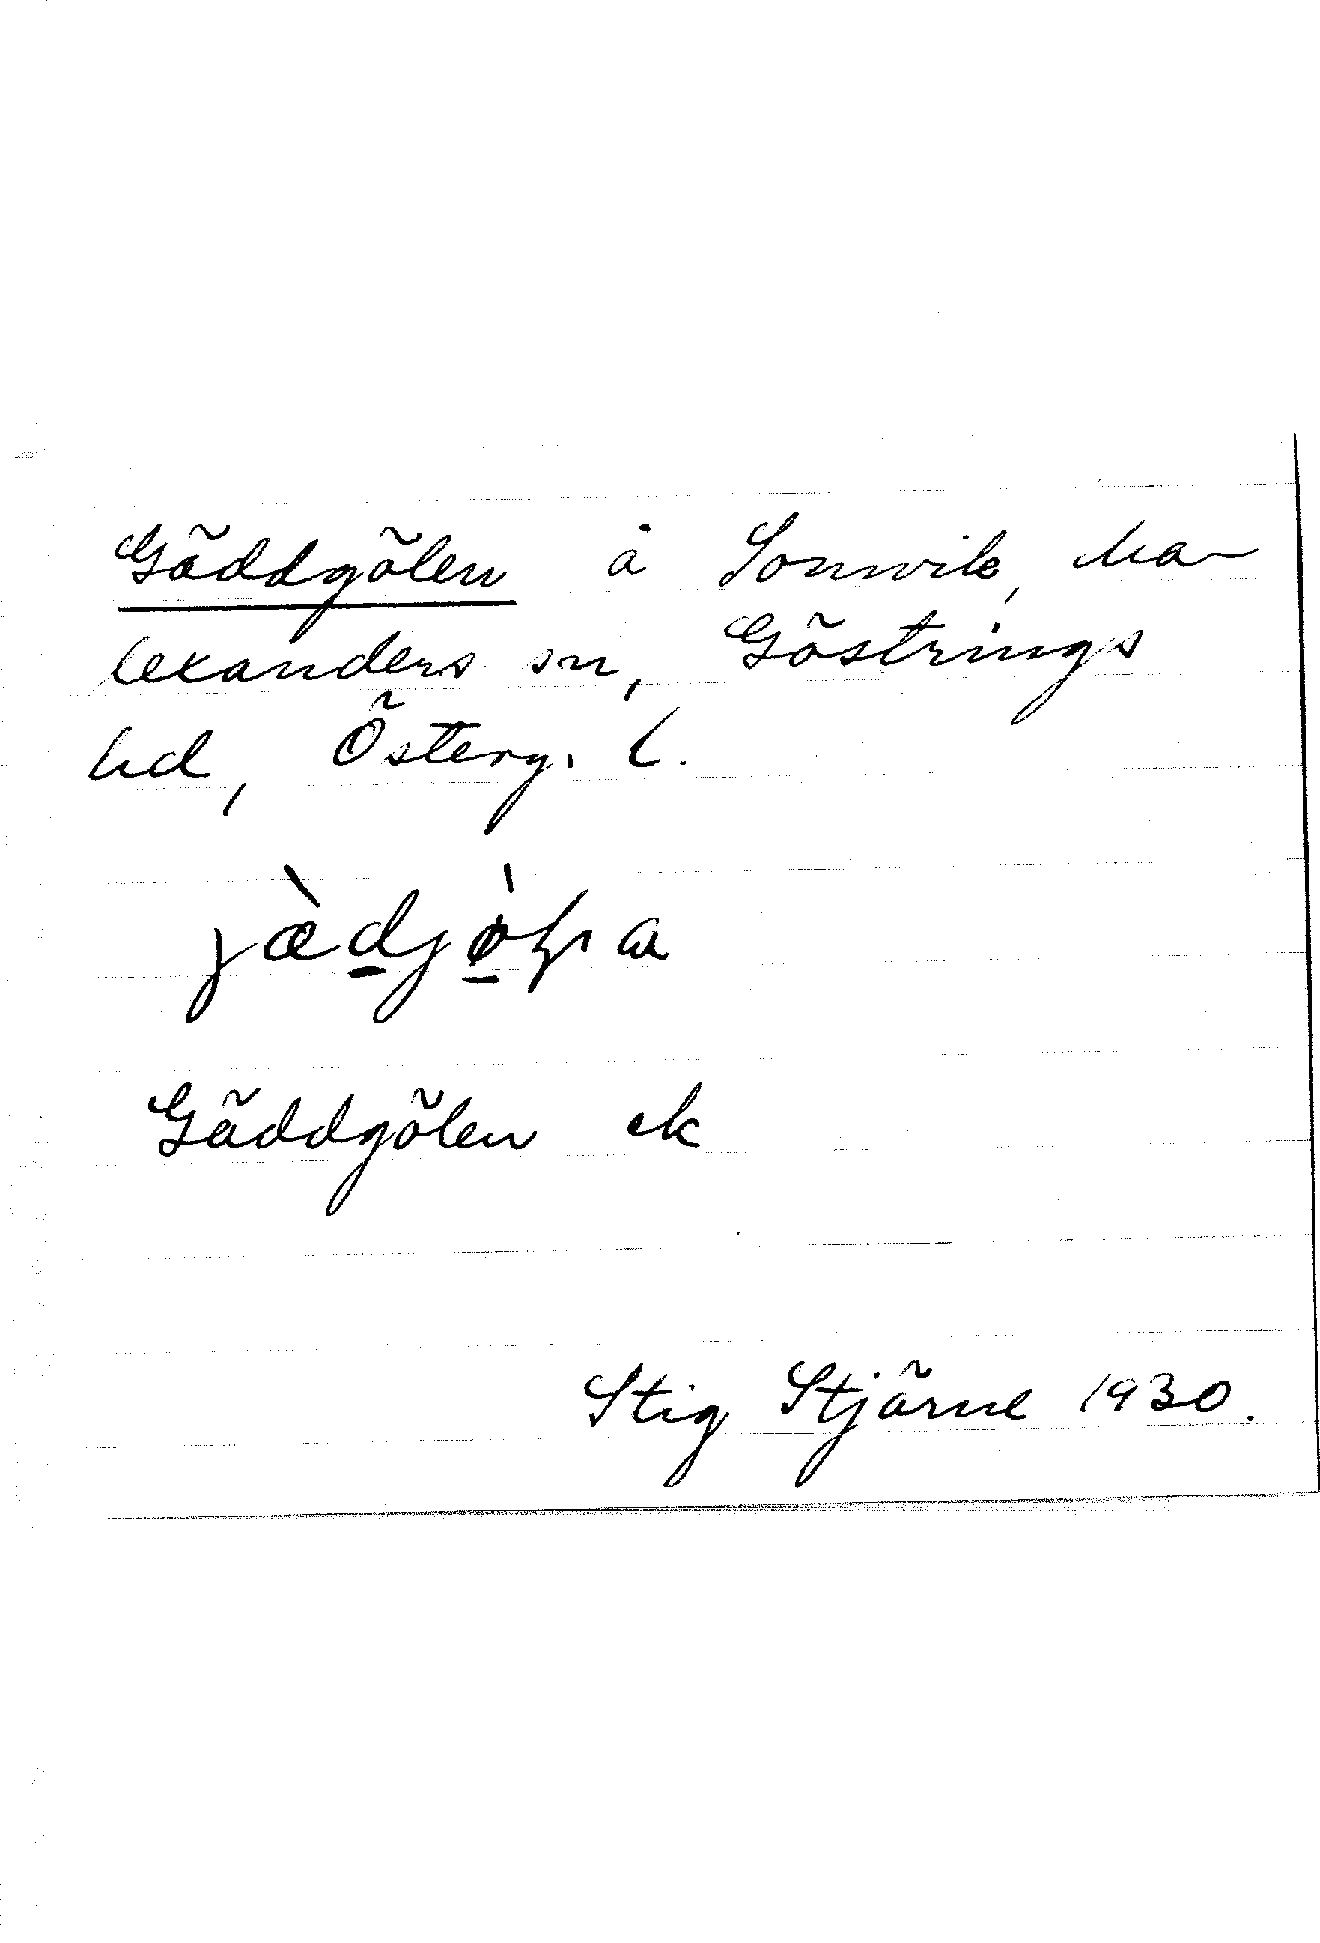 Gäddgölen å Sonnvik, Ma-
lexanders sn, Göstrings
hd, Österg. l.
Gäddgölen ek
Stig Stjärne 1930.